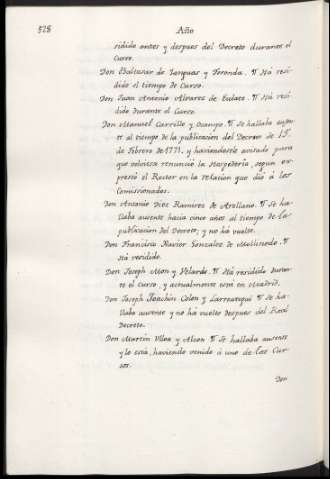 528
Año
sidido antes y despues del Decreto durante el
Curso.
Don Baltasar de Lezguas y Foronda. ¶ Ha resi-
dido el tiempo de Curso.
Don Juan Antonio Alvarez de Eulate. ¶ Ha resi
dido durante el Curso.
Don Manuel Carrillo y Ocampo. ¶ Se hallaba ausen-
te al tiempo de la publicacion del Decreto de 15.
de Febrero de 1771. y haviendosele avisado para
que volviese renunció la Hospederia, segun ex-
presó el Rector en la relacion que dió á los
Comissionados.
Don Antonio Diez Ramirez de Arellano. ¶ Se ha-
llaba ausente hacia cinco años al tiempo de la
publicacion del Decreto; y no há vuelto.
Don Francisco Xavier Gonzalez de Mollinedo. ¶
Há residido.
Don Joseph Mon y Velarde. ¶ Há residido duran-
te el curso, y actualmente está en Madrid.
Don Joseph Joachin Colon y Larreategui ¶ Se ha-
llaba ausente y no há vuelto despues del Real
Decreto.
Don Martin Ulloa y Alcon. ¶ Se hallaba ausente
y lo está, haviendo venido á uno de los Cur-
sos.
Don